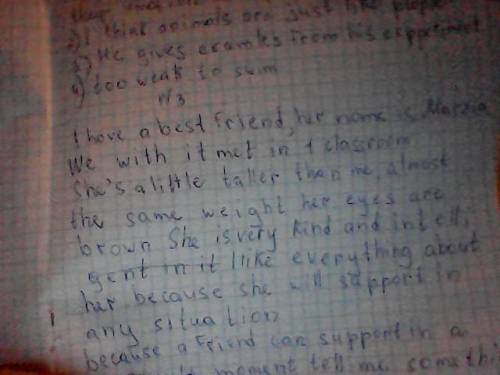 2) I think animals are just like people
3) He gives examles from his experiment
4) too weak to swim
N3
I have a best friend, her name is Marzia
We with it met in 1 classroom
She's a little taller than me, almost
the same weight her eyes are
brown She is very kind and intelli
gent in it I like everything about
her because she will support in
any situation
because a friend can support in a
moment tell me somethi